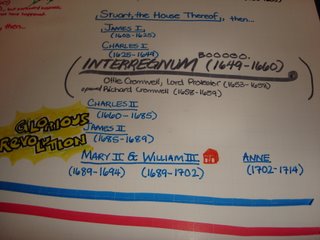 Stuart, the House Thereof, then...
then...
JAMES I,
(1603-1625)
CHARLES I
(1625-1649)
BOOOOO.
INTERREGNUM (1649-1660)
Ollie Cromwell, Lord Protector (1653-1658)
Richard Cromwell (1658-1659)
CHARLES II
(1660-1685)
GLORIOUS
REVOLUTION
JAMES II
(1685-1689)
MARY II & WILLIAM III
ANNE
(1689-1694) (1689-1702)
(1702-1714)